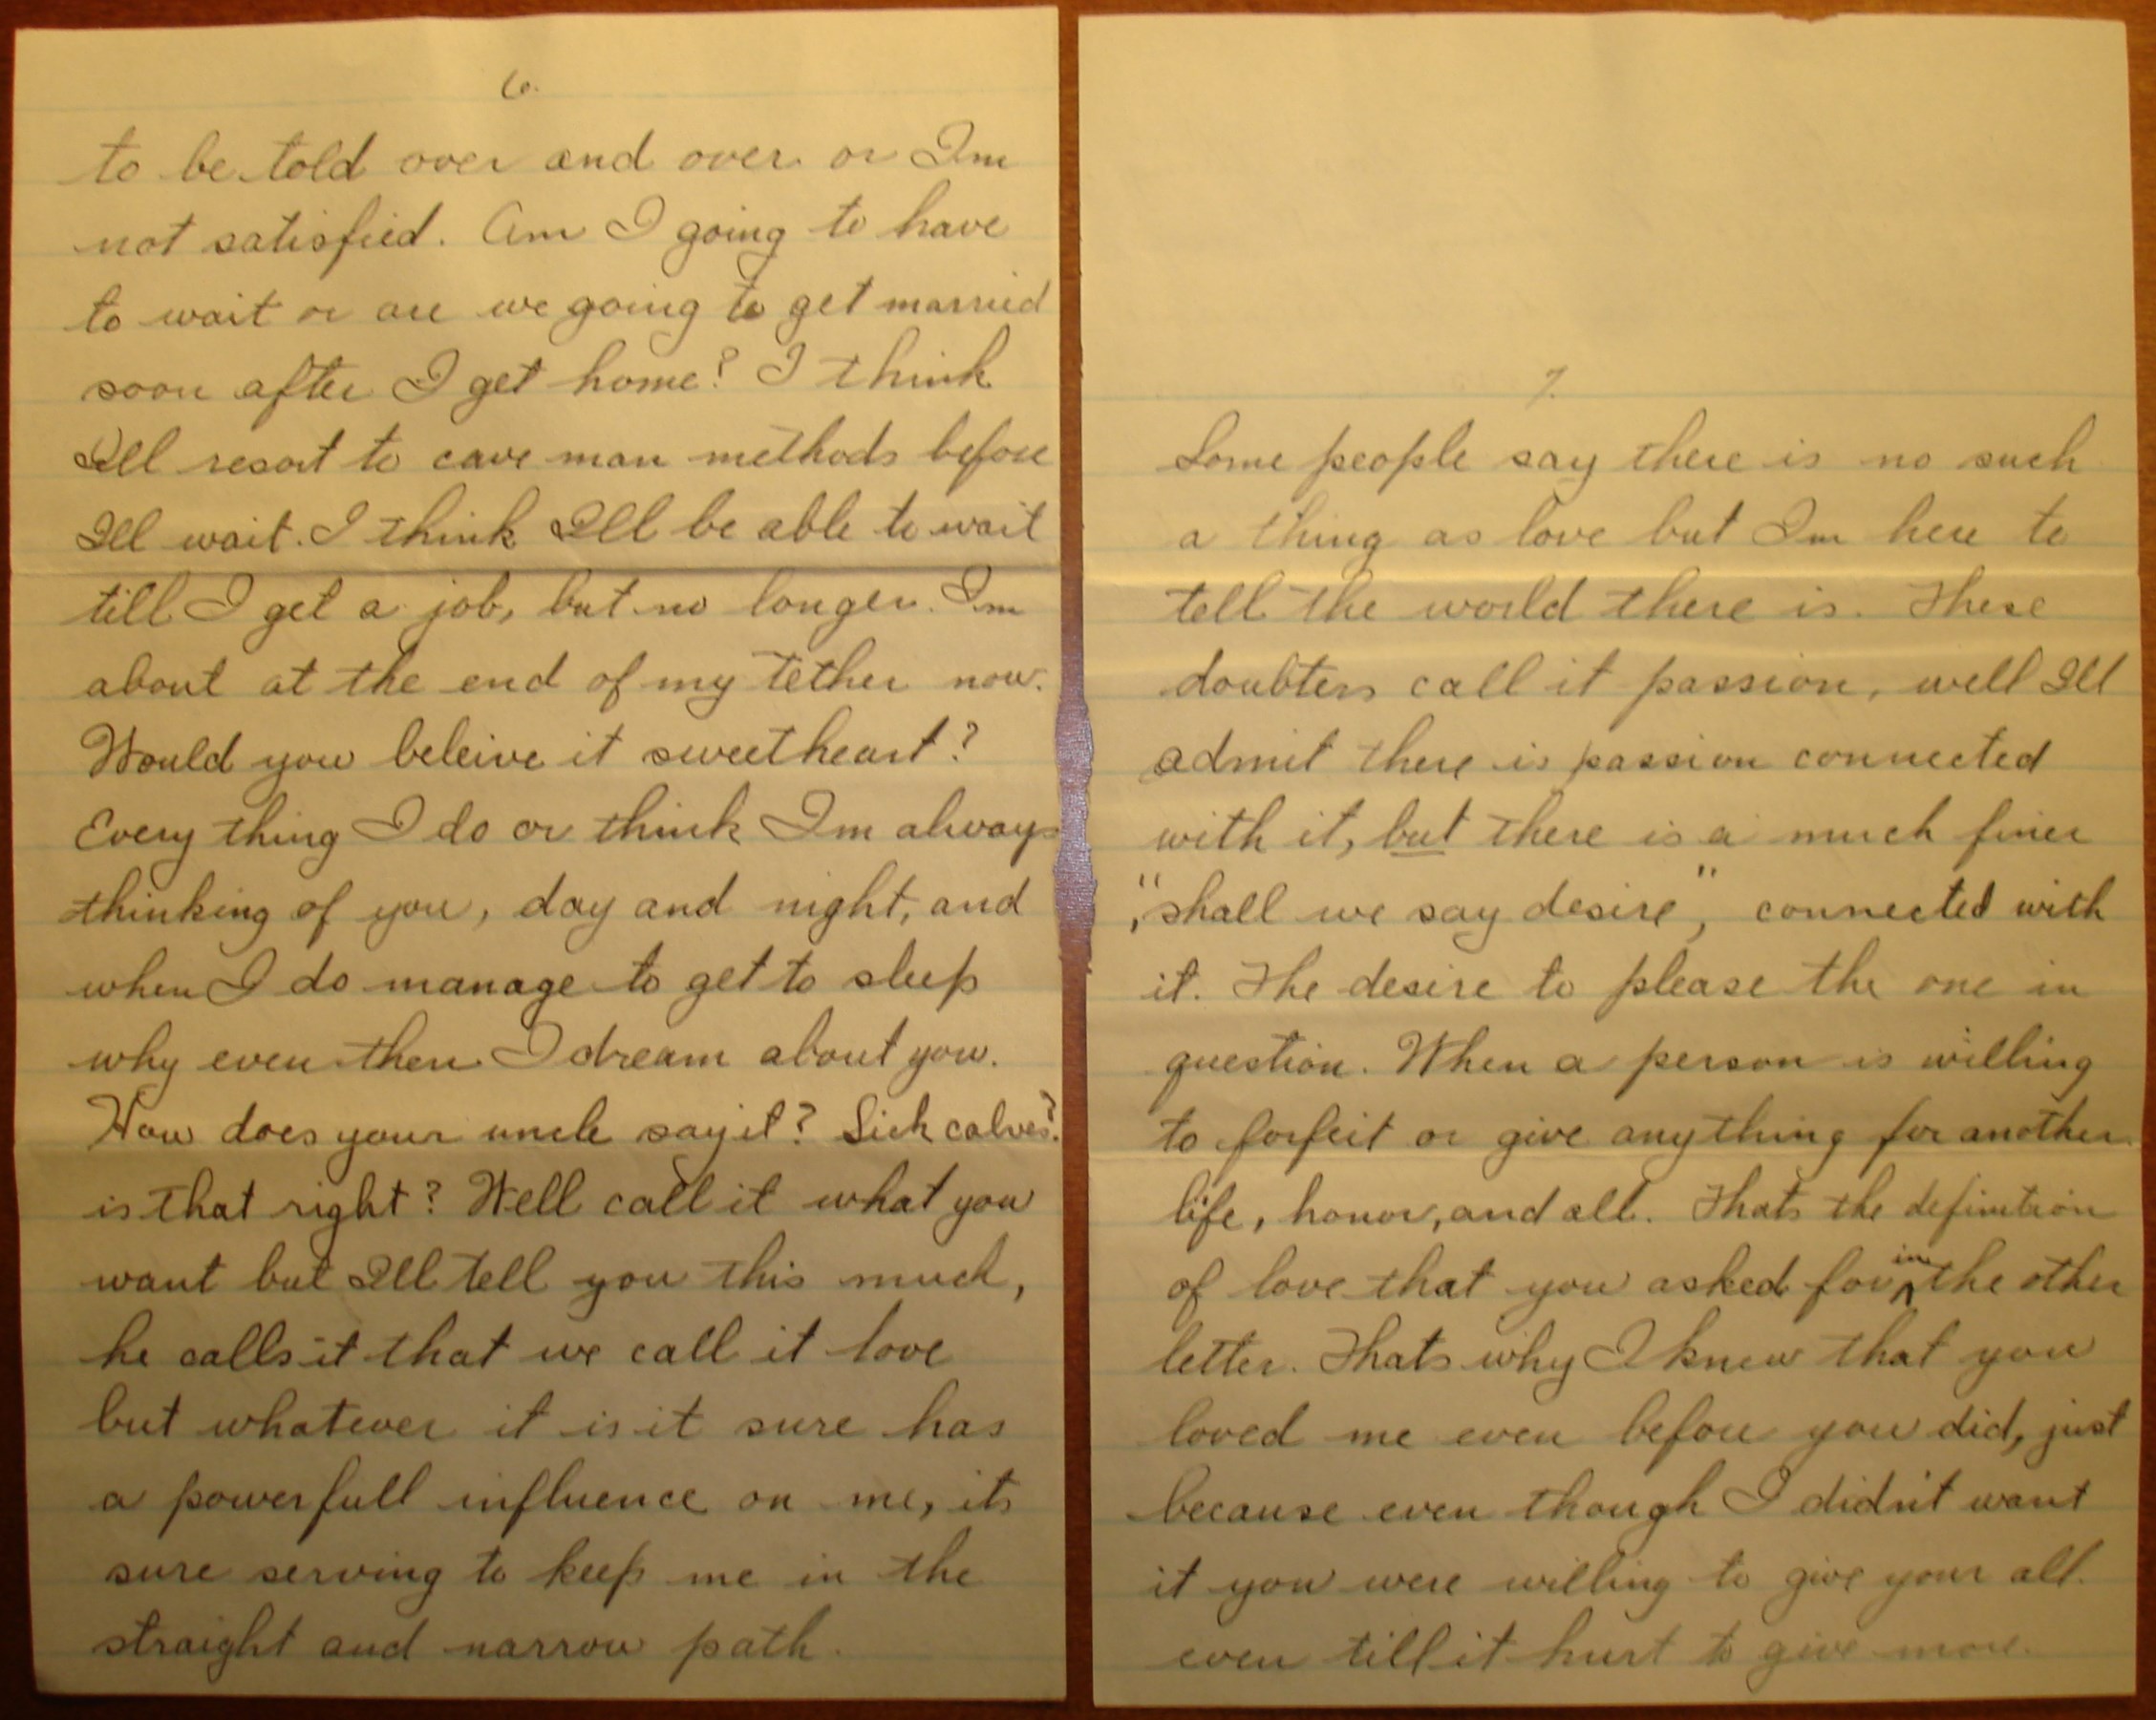 6.
to be told over and over or Im
not satisfied. Am I going to have
to wait or are we going to get married
soon after I get home? I think
Ill resort to cave man methods before
Ill wait. I think Ill be able to wait
till I get a job, but no longer. Im
about at the end of my tether now.
Would you beleive it sweetheart?
Every thing I do or think Im always
thinking of you, day and night, and
when I do manage to get to sleep
why even then I dream about you.
How does your uncle say it? Sick calves?
is that right? Well call it what you
want but Ill tell you this much,
he calls it that we call it love
but whatever it is it sure has
a powerfull influence on me, its
sure serving to keep me in the
straight and narrow path.
7.
Some people say there is no such
a thing as love but Im here to
tell the world there is. These
doubters call it passion, well Ill
admit there is passion connected
with it, but there is a much finer
, "shall we say desire", connected with
it. The desire to please the one in
question. When a person is willing
to forfeit or give anything for another.
life, honor, and all. Thats the definition
of love that you asked for in the other
letter. Thats why I knew that you
loved me even before you did, just
because even though I didn't want
it you were willing to give your all.
even till it hurt to give more.